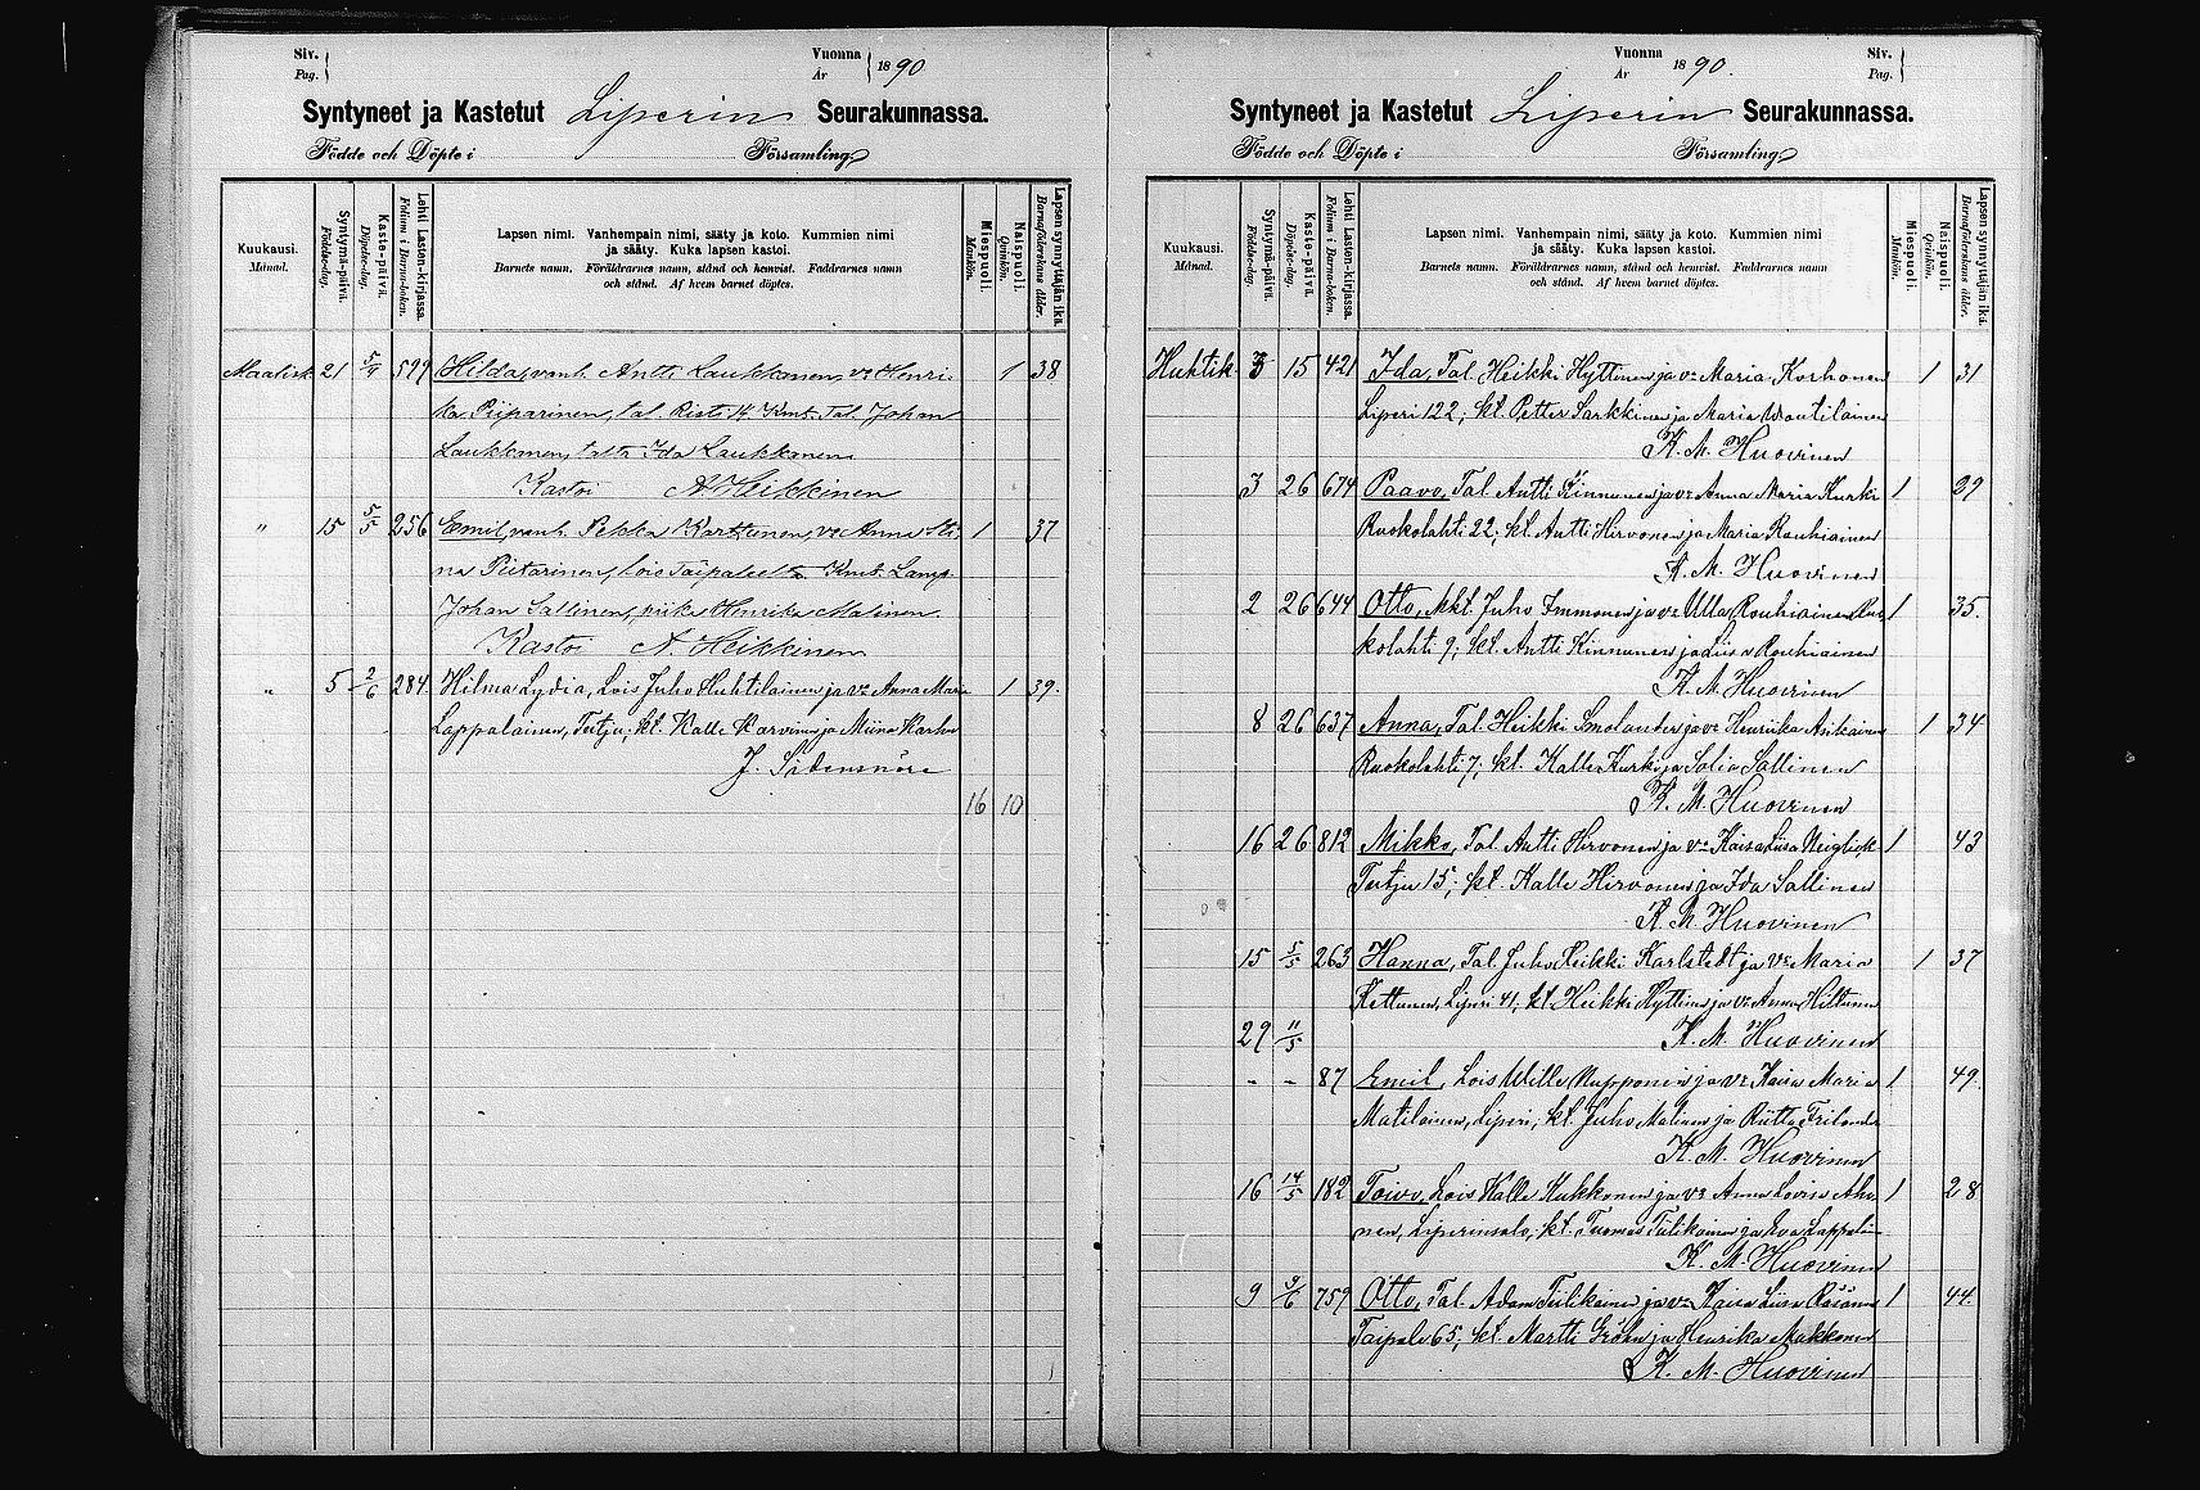 Siv.
Pag.
Vuonna
År
1890
Syntyneet ja Kastetut Liperin Seurakunnassa.
Födde och Döpte i Församling
Kuukausi.
Månad.
Syntymä-päivä.
Födelse-dag.
Kaste-päivä.
Döpelse-dag.
Lehti Lasten-kirjassa.
Folium i Barna-boken.
Lapsen nimi. Vanhempain nimi, sääty ja koto. Kummien nimi
ja sääty. Kuka lapsen kastoi.
Barnets namn. Föräldrarnes namn, stånd och hemvist. Faddrarnes namn
och stånd. Af hvem barnet döptes.
Miespuoli.
Mankön.
Naispuoli.
Qvinkön.
Lapsen synnyttäjän ikä.
Barnaföderskans ålder.
Maalisk. 21 5/4 599 Hilda, vanh. Antti Laukkanen, vo Henri- 1 38
ka Piiparinen, tal. Risti 14 Kmt. Tal. Johan
Laukkanen, talta Ida Laukkanen
Kastoi A. Heikkinen
" 15 5/5 256 Emil, vanh. Pekka Karttunen, vo Anna Sti- 1 37
na Piitarinen, lois Taipaleelta Kmt. Lamp.
Johan Sallinen, piika Henrika Malinen.
Kastoi A. Heikkinen
" 5 2/6 284. Hilma Lydia, Lois Juho Huhtilainen ja vo Anna Maria 1 39.
Lappalainen, Tutju; kt. Kalle Karvinen ja Miina Karhu
J. Sidensnöre
16 10
Vuonna
År
1890.
Siv.
Pag.
Syntyneet ja Kastetut Liperin Seurakunnassa.
Födde och Döpte i Församling
Kuukausi.
Månad.
Syntymä-päivä.
Födelse-dag.
Kaste-päivä.
Döpelse-dag.
Lehti Lasten-kirjassa.
Folium i Barna-boken.
Lapsen nimi. Vanhempain nimi, sääty ja koto. Kummien nimi
ja sääty. Kuka lapsen kastoi.
Barnets namn. Föräldrarnes namn, stånd och hemvist. Faddrarnes namn
och stånd. Af hvem barnet döptes.
Miespuoli.
Mankön.
Naispuoli.
Qvinkön.
Lapsen synnyttäjän ikä.
Barnaföderskans ålder.
Huhtik. 3 15 421 Ida, Tal. Heikki Hyttinen ja vo Maria Korhonen 1 31
Liperi 122; kt. Petter Sarkkinen ja Maria Woutilainen
K. M. Huovinen
3 26 674 Paavo, Tal. Antti Kinnunen ja vo Anna Maria Kurki 1 29
Ruokolahti 22; kt. Antti Hirvonen ja Maria Rouhiainen
K. M. Huovinen
2 26 644 Otto, Mkt. Juho Immonen ja vo Ulla Rouhiainen Ruo- 1 35.
kolahti 9; kt. Antti Kinnunen ja Liisa Rouhiainen
K. M. Huovinen
8 26 637 Anna, Tal. Heikki Smolander ja vo Henriika Asikainen 1 34
Ruokolahti 7; kt. Kalle Kurki ja Sofia Sallinen
K. M. Huovinen
16 26 812 Mikko, Tal. Antti Hirvonen ja vo Kaisa Liisa Neiglick 1 43
Tutju 15; kt. Kalle Hirvonen ja Ida Sallinen
K. M. Huovinen
15 5/5 263 Hanna, Tal. Juho Heikki Karlstedt ja vo Maria 1 37
Kettunen, Liperi 41; kt. Heikki Hyttinen ja vo Anna Hiltunen
29 11/5 K. M. Huovinen
- - 87 Emil, Lois Wille Nupponen ja vo Kaisa Maria 1 49.
Matilainen, Liperi; kt. Juho Malinen ja Riitta Frilander
K. M. Huovinen
16 14/5 182 Toivo, Lois Kalle Kukkonen ja vo Anna Lovisa Aho- 1 28
nen, Liperinsalo; kt. Tuomas Tiilikainen ja Eva Lappalain
K. M. Huovinen
9 9/6 759 Otto, Tal. Adam Tiilikainen ja vo Kaisa Liisa Räsänen 1 44.
Taipale 65; kt. Martti Gröhn ja Henrika Makkonen
K. M. Huovinen